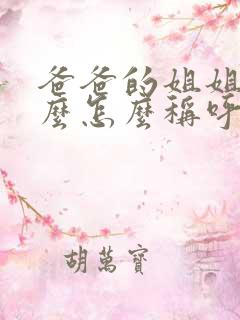 爸爸的姐姐
麼怎麼稱呼
胡萬寶